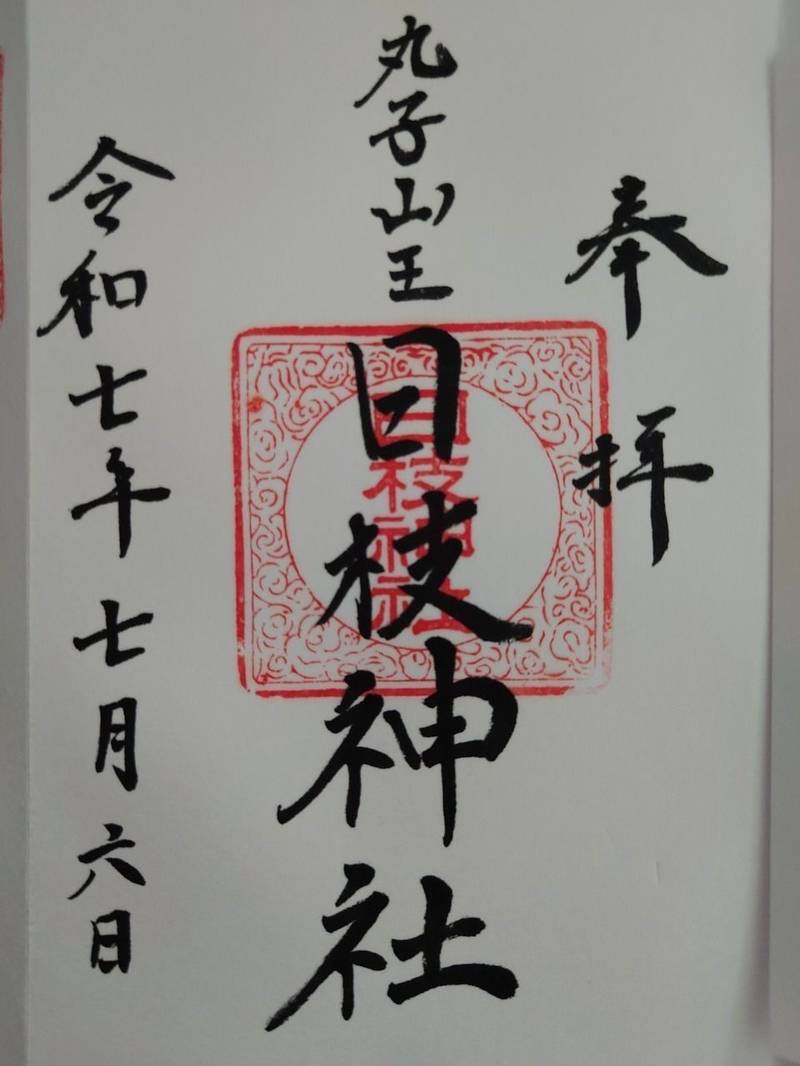 奉拝
丸子山王
日枝神社
日枝神社
令和七年七月六日